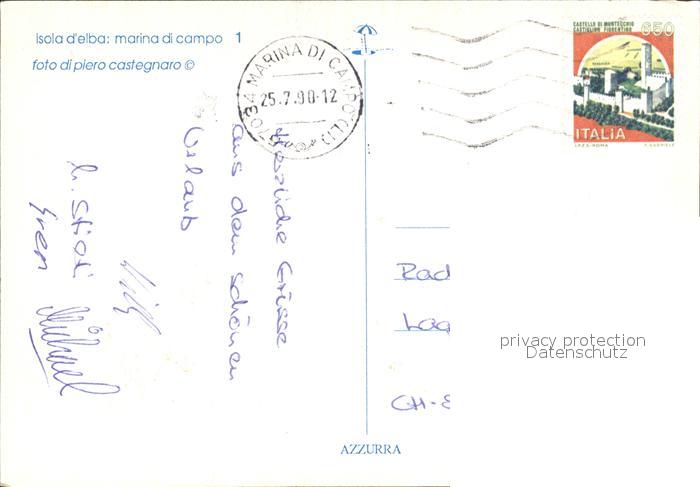 isola d'elba: marina di campo 1
foto di piero castegnaro ©
57034 MARINA DI CAMPO (LI)
25.7.90-12
CASTELLO DI MONTECCHIO
CASTIGLION FIORENTINO
650
ITALIA
I.P.Z.S.-ROMA
Herzliche Grüsse
aus dem schönen
Urlaub
Sven
Michael
Rad
CH-8
privacy protection
Datenschutz
AZZURRA